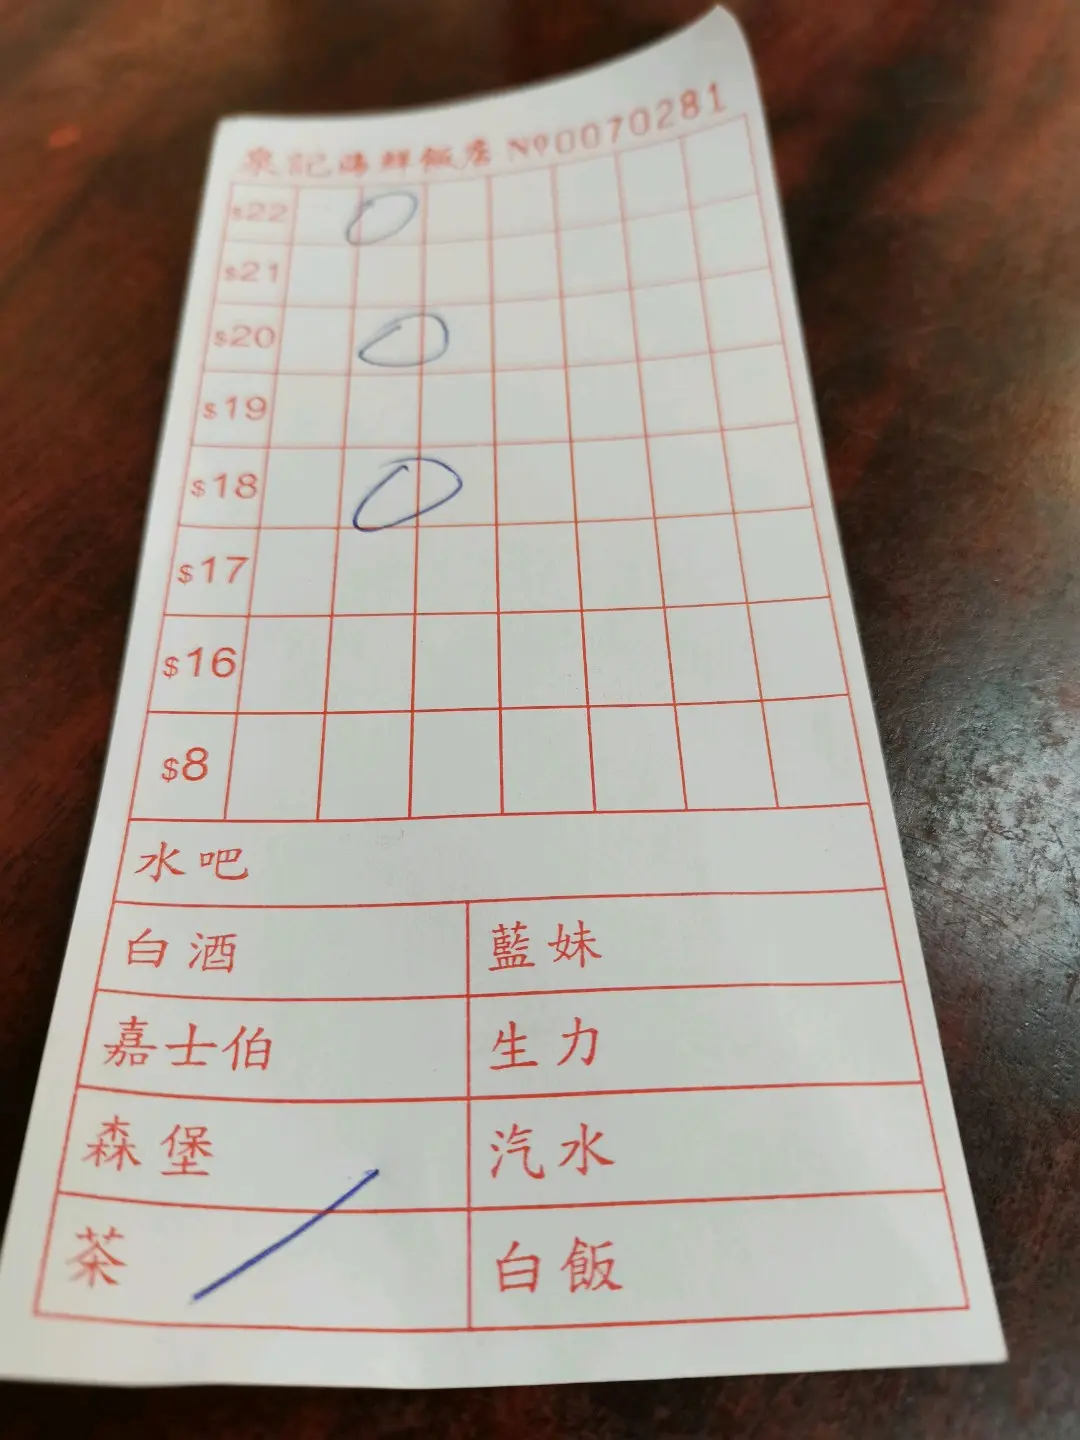 泉記海鮮飯店 Nº0070281
$22
$21
$20
$19
$18
$17
$16
$8
水吧
白酒 藍妹
嘉士伯 生力
森堡 汽水
茶 白飯